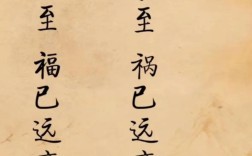 至 祸已远
至 福已远